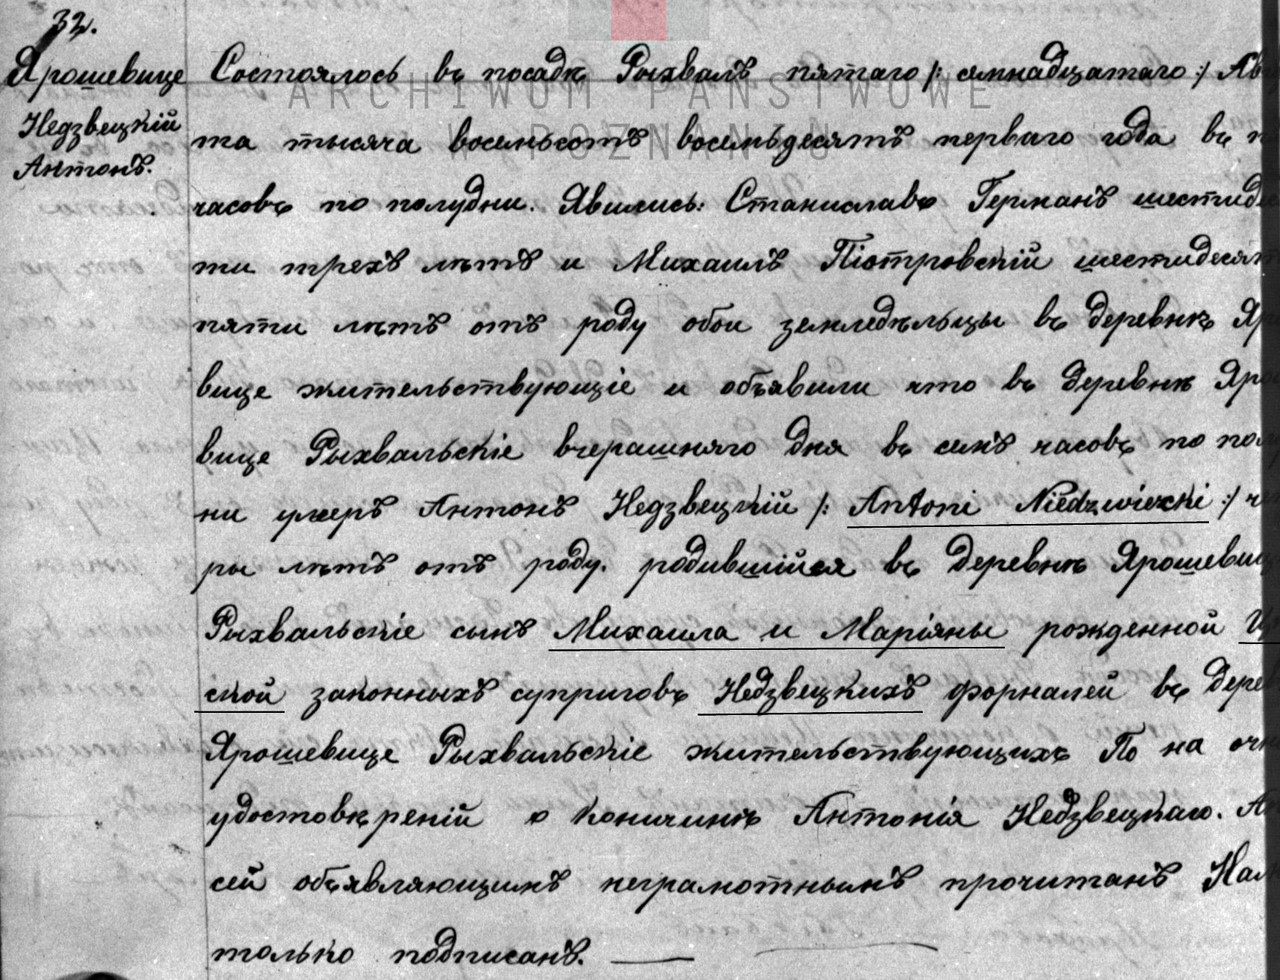 32.
Ярошевице
Недзвецкій
Антонъ.
Состоялось въ посадѣ Рыхвалѣ пятаго /: семнадцатаго :/ Авг
ARCHIWUM PAŃSTWOWE
W POZNANIU
та тысяча восемьсотъ восемьдесятъ перваго года въ п
часовъ по полудни. Явились: Станиславъ Германъ шестиде
ти трехъ лѣтъ и Михаилъ Піотровскій шестидесят
пяти лѣтъ отъ роду обои земледѣльцы въ деревнѣ Яро
вице жительствующіе и объявили что въ деревнѣ Яро
вице Рыхвальскіе вчерашняго дня въ семъ часовъ по пол
ни умеръ Антонъ Недзвецкій /: Antoni Niedzwiecki :/ че
ры лѣтъ отъ роду. родившійся въ деревнѣ Ярошевиц
Рыхвальскіе сынъ Михаила и Маріяны рожденной
ской законныхъ суприговъ Недзвецкихъ форналей въ дере
Ярошевице Рыхвальскіе жительствующихъ По на очн
удостовѣреній о кончинѣ Антонія Недзвецкаго. А
сей объявляющимъ неграмотнымъ прочитанъ Нам
только подписанъ.